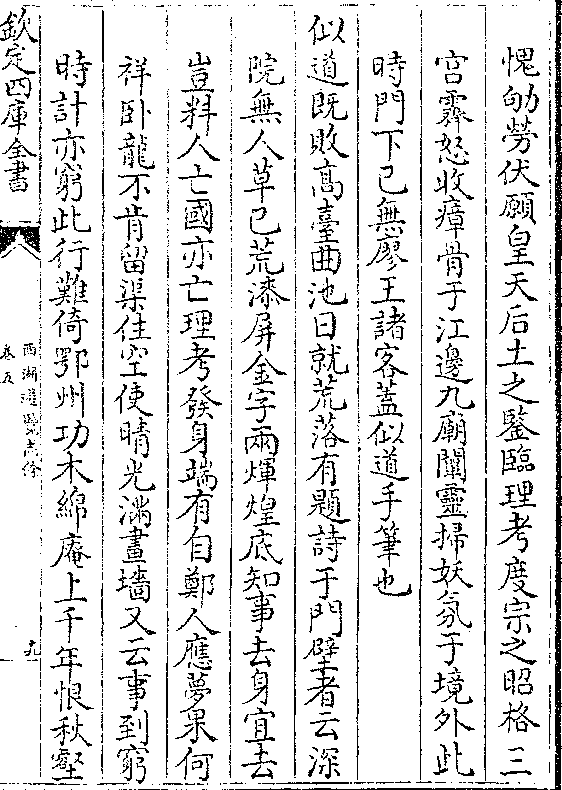 愧劬勞伏願皇天后土之鑒臨理考度宗之昭格三
宫霽怒收瘴骨于江邊九廟闡靈掃妖氛于境外此
時門下已無廖王諸客蓋似道手筆也
似道既敗高臺曲池日就荒落有題詩于門壁者云深
院無人草已荒漆屏金字兩煇煌底知事去身宜去
豈料人亡國亦亡理考發身端有自鄭人應夢果何
祥卧龍不肯留渠住空使晴光滿畫墻又云事到窮
時計亦窮此行難倚鄂州功木綿庵上千年恨秋壑
欽定四庫全書
西湖遊覽志餘
卷五
九